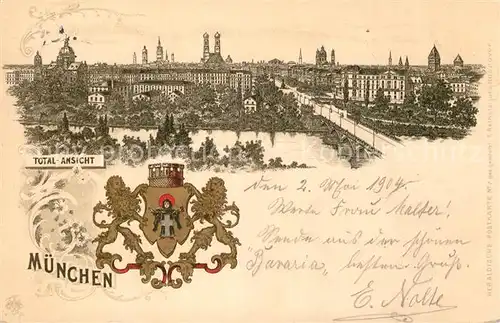 TOTAL-ANSICHT
MÜNCHEN
den 2. Mai 1904.
Werte Frau Malter!
Sende aus der schönen
„Bavaria“, besten Gruß.
E. Nolte
HERALDISCHE POSTKARTE No